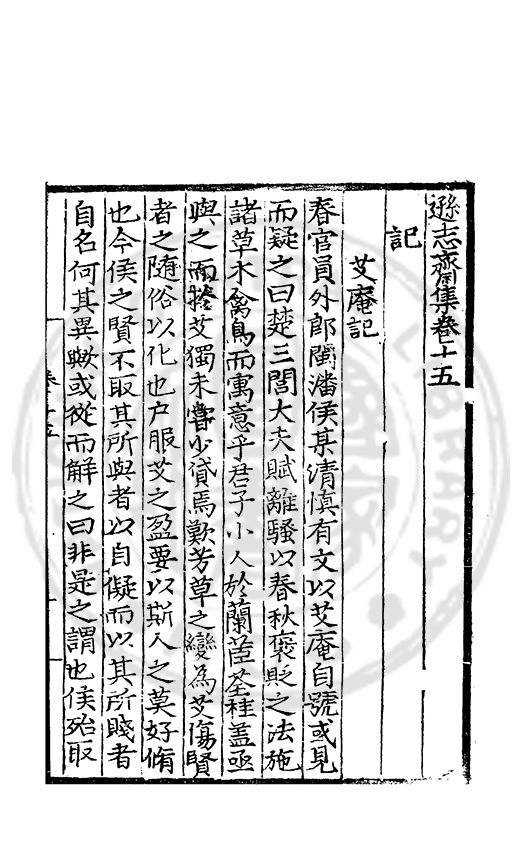 遜志齋集卷之十五
記
艾庵記
春官員外郎閩潘侯某清慎有文以艾庵自號或見
而疑之曰楚三閭大夫賦離騷以春秋褒貶之法施
諸草木禽鳥而寓意乎君子小人於蘭茝荃桂蓋亟
與之而於艾獨未嘗少貸焉歎芳草之變為艾傷賢
者之隨俗以化也戶服艾之盈要以斯人之莫好脩
也今侯之賢不取其所與者以自儗而以其所賤者
自名何其異歟或從而解之曰非是之謂也侯殆取
卷十五